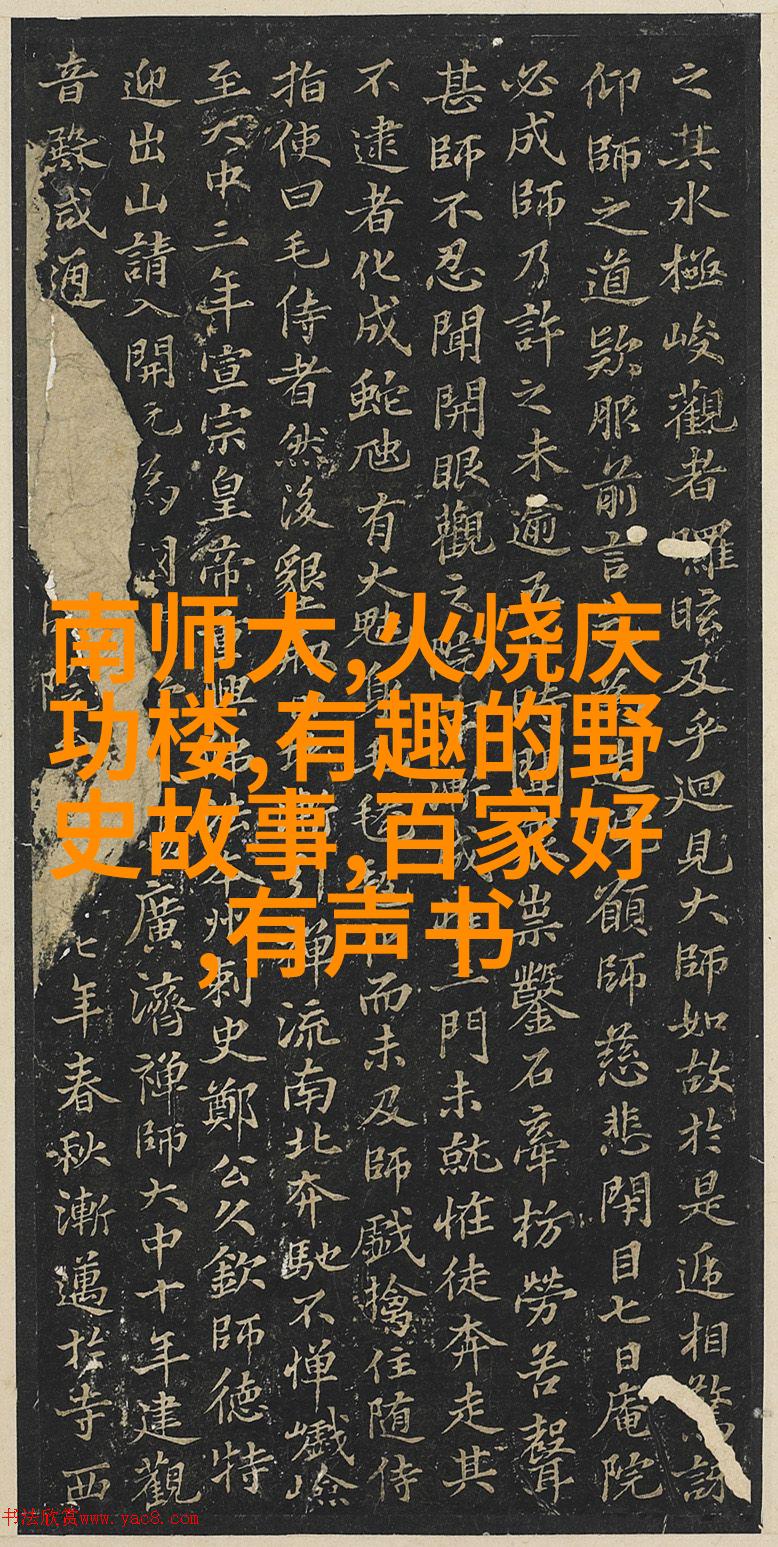 南师大,火烧庆
功楼,有趣的野
史故事,百家好
,有声书
之其水極峻觀者眩及乎迴見大師如故於是遞相驚訝
仰師之道欵服前言願師慈悲閉目七日庵院
必成師乃許之未逾五祟鑿石牽枋勞苦聲
甚師不忍聞開眼觀之院一門未就恠徒奔走其
不逮者化成蛇虺有大魅身而未及師戲擒住随侍
指使曰毛侍者然後墾引禪流南北奔馳不憚巇嶮
至大中三年宣宗皇帝重興州刺史鄭公久欽師德特
迎出山請入開元為廣濟禪師大中十年建觀
音殿咸通院七年春秋漸邁於寺西
书法欣赏www.yac8.com